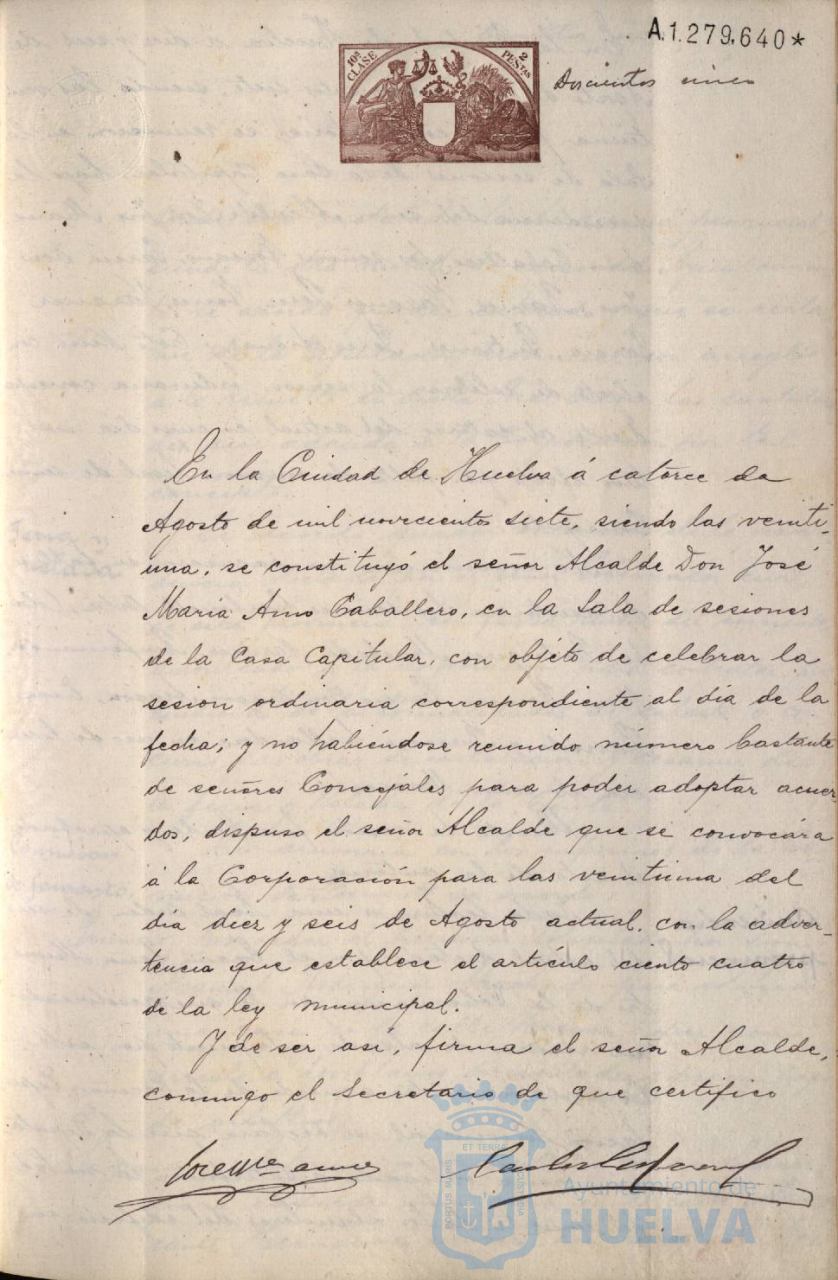 A.1.279,640*
10ª CLASE
2 PESTAS
Doscientos cinco
En la Ciudad de Huelva á catorce de
Agosto de mil novecientos siete, siendo las veinti-
una, se constituyó el señor Alcalde Don José
Maria Amo Caballero, en la Sala de sesiones
de la Casa Capitular, con objeto de celebrar la
sesion ordinaria correspondiente al dia de la
fecha; y no habiéndose reunido número bastante
de señores Concejales para poder adoptar acuer-
dos, dispuso el señor Alcalde que se convocára
á la Corporación para las veintiuna del
dia diez y seis de Agosto actual, con la adver-
tencia que establese el artículo ciento cuatro
de la ley municipal.
Y de ser así, firma el señor Alcalde,
conmigo el Secretario de que certifico
José Mª Amo
ET TERRAE
PORTUS MARIS
CUSTODIA
Ayuntamiento de
HUELVA